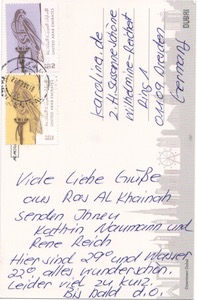 UNITED ARAB EMIRATES
UNITED ARAB EMIRATES
DUBAI
karolina.de
z.H. Susanne Schöne
Wilhelmine-Reichard
Ring 1
01109 Dresden
Germany
Viele liebe Grüße
aus Ras Al Khaimah
senden Ihnen
Kathrin Naumann und
Rene Reich
Hier sind 29° und Wasser
22° alles wunderschön.
Leider viel zu kurz.
Bis bald d.o.